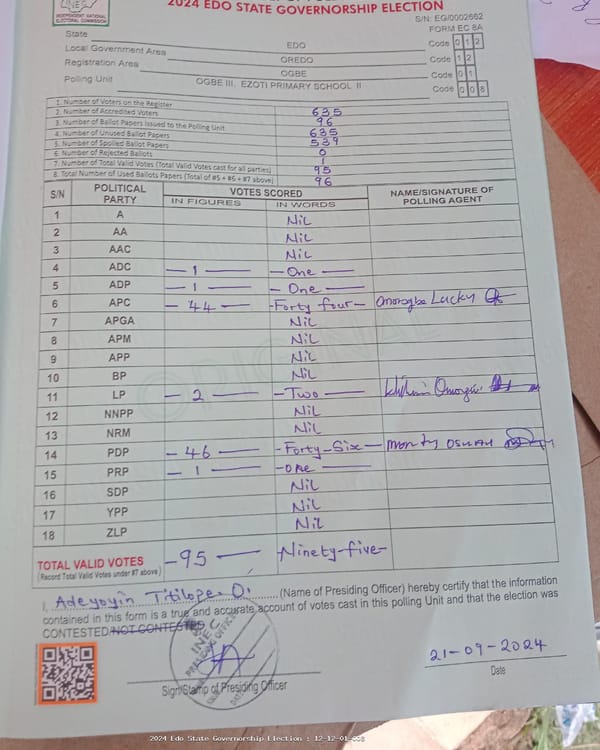 INDEPENDENT NATIONAL ELECTORAL COMMISSION
2024 EDO STATE GOVERNORSHIP ELECTION
S/N: EG/0002662
FORM EC 8A
State EDO Code 0 1 2
Local Government Area OREDO Code 1 2
Registration Area OGBE Code 0 1
Polling Unit OGBE III, EZOTI PRIMARY SCHOOL II Code 0 0 8
1. Number of Voters on the Register 635
2. Number of Accredited Voters 96
3. Number of Ballot Papers Issued to the Polling Unit 635
4. Number of Unused Ballot Papers 539
5. Number of Spoiled Ballot Papers 0
6. Number of Rejected Ballots 1
7. Number of Total Valid Votes (Total Valid Votes cast for all parties) 95
8. Total Number of Used Ballots Papers (Total of #5 + #6 + #7 above) 96
S/N POLITICAL PARTY VOTES SCORED NAME/SIGNATURE OF POLLING AGENT
IN FIGURES IN WORDS
1 A Nil
2 AA Nil
3 AAC Nil
4 ADC - 1 - - One -
5 ADP - 1 - - One -
6 APC - 44 - - Forty four - Omorogbe Lucky
7 APGA Nil
8 APM Nil
9 APP Nil
10 BP Nil
11 LP - 2 - - Two -
12 NNPP Nil
13 NRM Nil
14 PDP - 46 - - Forty-Six - Monty
15 PRP - 1 - - One -
16 SDP Nil
17 YPP Nil
18 ZLP Nil
TOTAL VALID VOTES - 95 - Ninety-five -
(Record Total Valid Votes under #7 above)
I, Adeyoyin Titilope O. (Name of Presiding Officer) hereby certify that the information
contained in this form is a true and accurate account of votes cast in this polling Unit and that the election was
CONTESTED/NOT CONTESTED
INEC
PRESIDING OFFICER
21-09-2024
Sign/Stamp of Presiding Officer
Date
ORIGINAL
2024 Edo State Governorship Election : 12-12-01-008